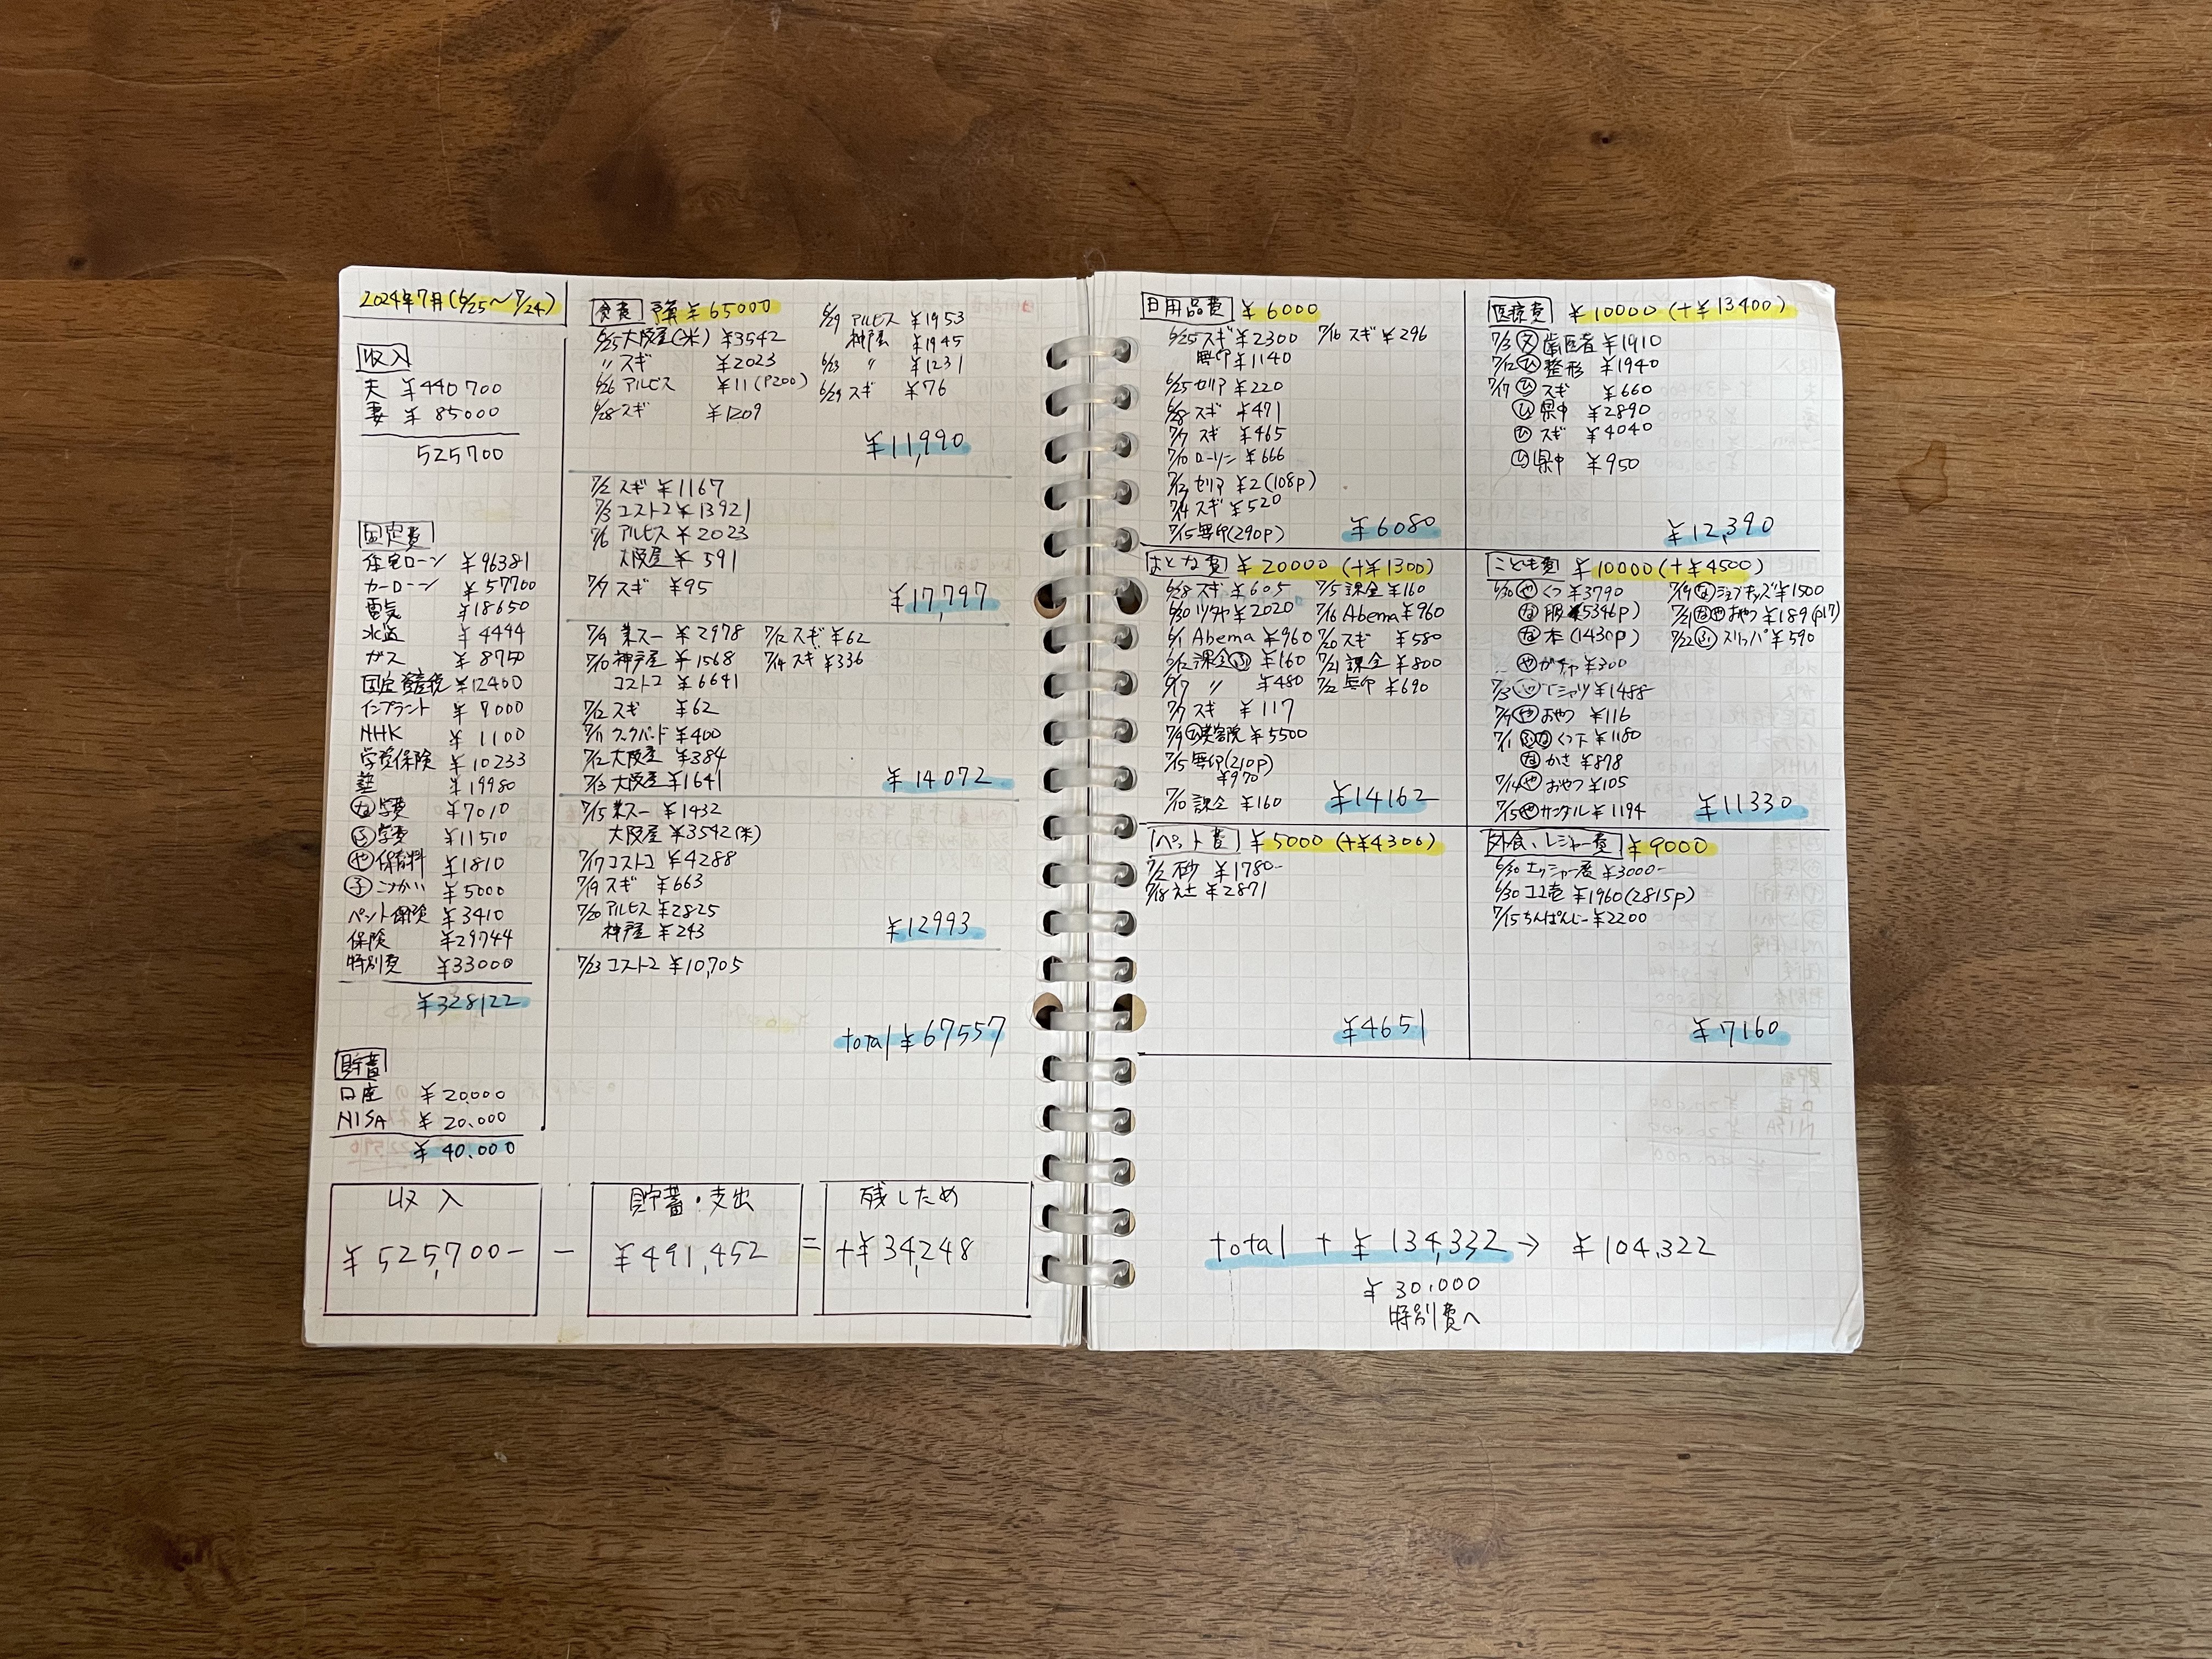 2024年7月(6/25～7/24)
収入
夫 ¥440700
妻 ¥ 85000
525700
固定費
住宅ローン ¥96381
カーローン ¥57700
電気 ¥18650
水道 ¥4444
ガス ¥8750
固定資産税 ¥12400
インプラント ¥9000
NHK ¥1100
学資保険 ¥10233
塾 ¥19980
な学費 ¥7010
ふ学費 ¥11510
や保育料 ¥1810
子こづかい ¥5000
ペット保険 ¥3410
保険 ¥29744
特別費 ¥33000
¥328122
貯蓄
口座 ¥20.000
NISA ¥20.000
¥40.000
食費 予算 ¥65000
6/25 大阪屋(米) ¥3542
〃 スギ ¥2023
6/26 アルビス ¥11(P200)
6/28 スギ ¥1209
6/29 アルビス ¥1953
神戸屋 ¥1945
6/23 〃 ¥1231
6/29 スギ ¥76
¥11,990
7/2 スギ ¥1167
7/3 コストコ ¥13921
7/6 アルビス ¥2023
大阪屋 ¥591
7/7 スギ ¥95
¥17,797
7/9 業スー ¥2978
7/10 神戸屋 ¥1568
コストコ ¥6641
7/12 スギ ¥62
7/11 クックバード ¥400
7/12 大阪屋 ¥384
7/13 大阪屋 ¥1641
7/12 スギ ¥62
7/14 スギ ¥336
¥14072
7/15 業スー ¥1432
大阪屋 ¥3542(米)
7/17 コストコ ¥4288
7/19 スギ ¥663
7/20 アルビス ¥2825
神戸屋 ¥243
¥12993
7/23 コストコ ¥10,705
total ¥67557
収入
¥525,700-
-
貯蓄・支出
¥491,452
=
残しため
+¥34,248
日用品費 ¥6000
6/25 スギ ¥2300
無印 ¥1140
6/25 セリア ¥220
6/28 スギ ¥471
7/7 スギ ¥465
7/10 ローソン ¥666
7/12 セリア ¥2(108p)
7/14 スギ ¥520
7/15 無印(290p)
7/16 スギ ¥296
¥6080
医療費 ¥10000(+¥13400)
7/3 歯医者 ¥1910
7/12 ひ 整形 ¥1940
7/17 ひ スギ ¥660
ひ 県中 ¥2890
ひ スギ ¥4040
ひ 県中 ¥950
¥12,390
おとな費 ¥20000(+¥1300)
6/28 スギ ¥605
6/30 ツタヤ ¥2020
6/1 Abema ¥960
6/12 課金ふ ¥160
6/17 〃 ¥480
7/7 スギ ¥117
7/9 ひ美容院 ¥5500
7/15 無印(210p)
¥970
7/10 課金 ¥160
7/5 課金 ¥160
7/16 Abema ¥960
7/20 スギ ¥580
7/21 課金 ¥800
7/22 無印 ¥690
¥14162
こども費 ¥10000(+¥4500)
6/30 や くつ ¥3790
な 服 (5346p)
な 本(1430p)
や ガチャ ¥300
7/3 や Tシャツ ¥1488
7/7 や おやつ ¥116
7/11 ふな くつ下 ¥1180
な かさ ¥878
7/14 や おやつ ¥105
7/15 や サンダル ¥1194
7/19 な ジョブキッズ ¥1500
7/21 なや おやつ ¥189(p17)
7/22 ふ スリッパ ¥590
¥11330
ペット費 ¥5000(+¥4306)
7/2 砂 ¥1780-
7/18 ネ土 ¥2871
¥4651
外食、レジャー費 ¥9000
6/30 エッシャー展 ¥3000-
6/30 ココ壱 ¥1960(2815p)
7/15 ちんぱんじー ¥2200
¥7160
total + ¥134,332 → ¥104,322
¥30.000
特別費へ